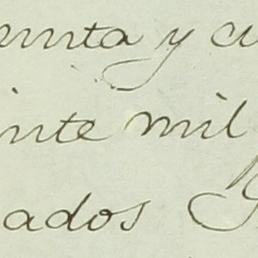 enta y cu
inte mil
ados